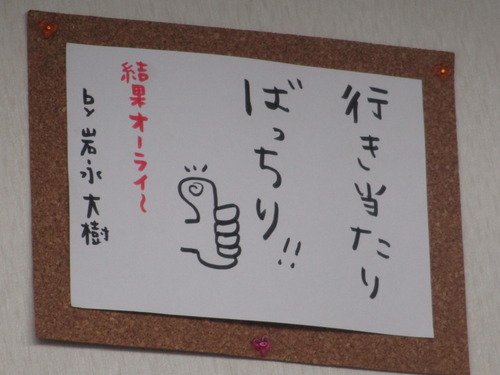 行き当たり
ばっちり!!
結果オーライ〜
by 岩永大樹